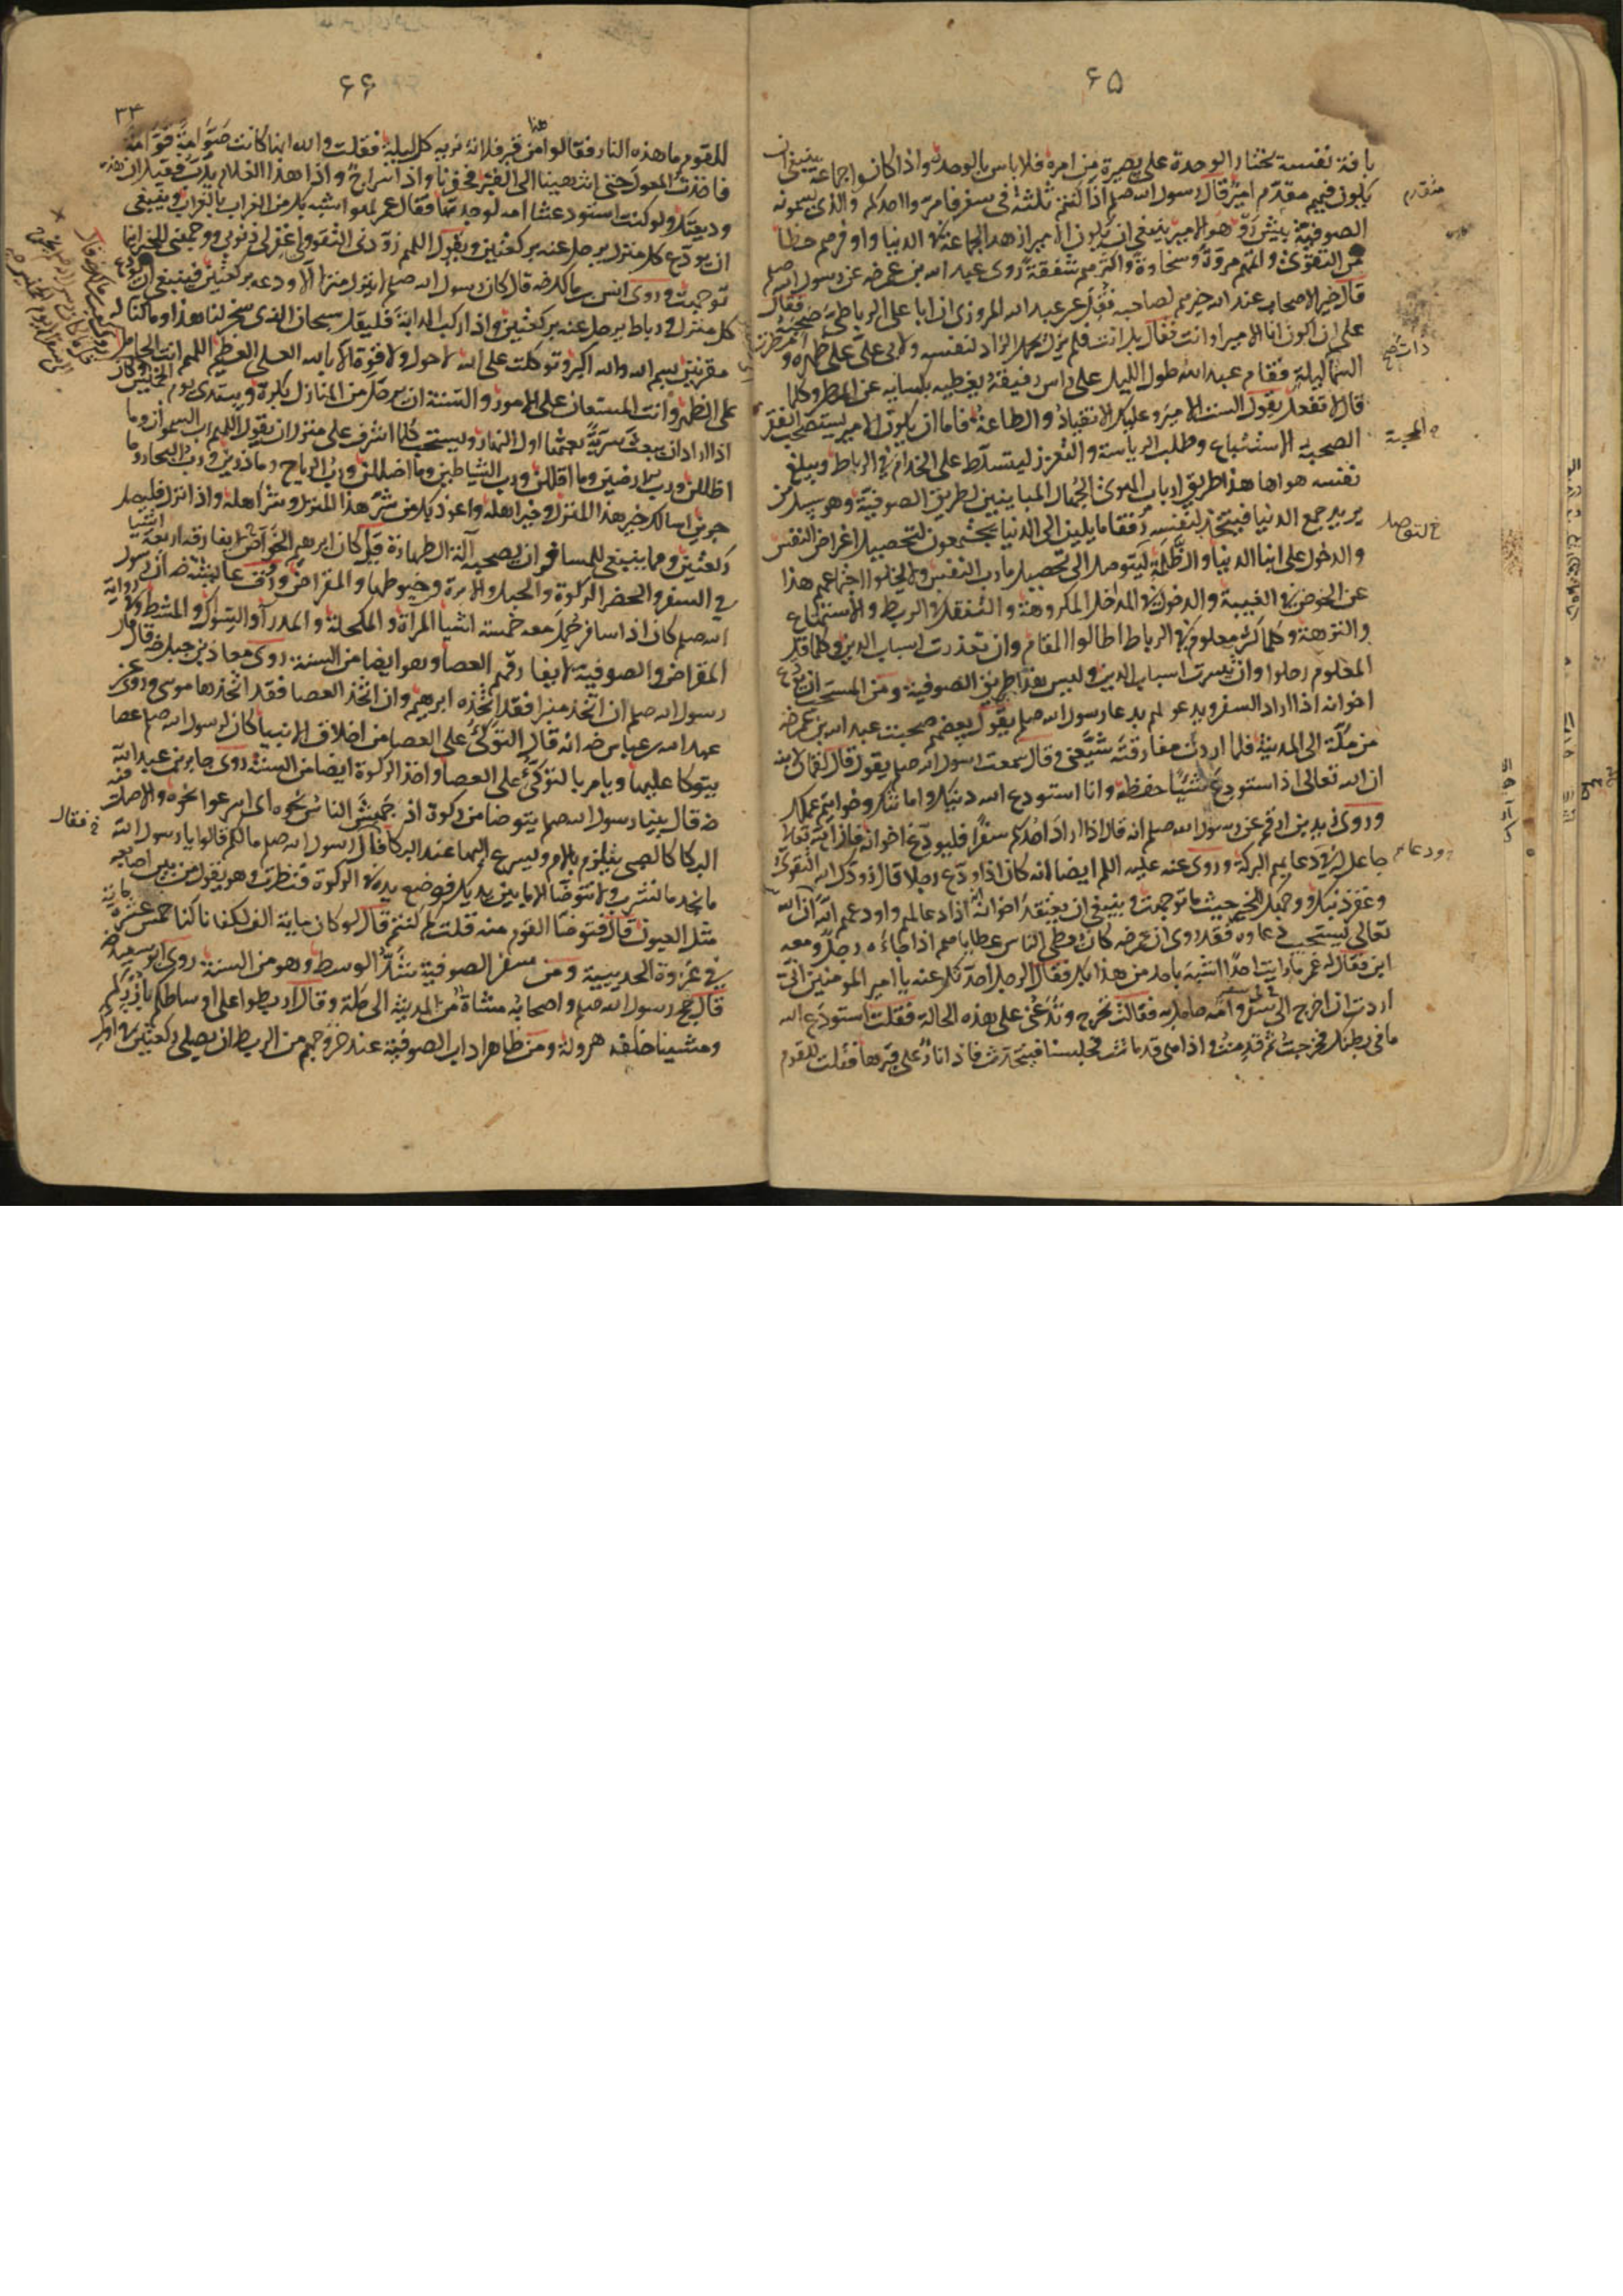 ۶۵
بافة نفسه يختار الوحدة على بصيرة من امره فلا باس بالوحدة واذا كانوا جماعة ينبغى ان
يكون فيهم متقدم امير قال رسول الله صلم اذا كنتم ثلثة فى سفر فامروا احدكم والذى يسمونه
الصوفية پيش رو هو الامير ينبغى ان يكون الامير ازهد الجماعة فى الدنيا واوفرهم حظا
من التقوى واتمهم مروة وسخاوة واكثرهم شفقة روى عبد الله بن عمر رضه عن رسول الله صلم
قال خير الاصحاب عند الله خيرهم لصاحبه نقل عن عبد الله المروزى ان ابا على الرباطى صحبه فقال
على ان اكون انا الامير او انت فقال بل انت فلم يزل يحمل الزاد لنفسه ولابى على على ظهره و
السما ليلة فقام عبد الله طول الليل على راس رفيقه يغطيه بكسايه عن المطر وكلما
قال لا تفعل يقول الست الامير وعليك الانقياد والطاعة فاما ان يكون الامير يستصحب الفقرا
الصحبة الاستتباع وطلب الرياسة والتعزز ليتسلط على الخدام فى الرباط ويبلغ
نفسه هواها هذا طريق ارباب الهوى الجهال المباينين لطريق الصوفية وهو سبيل من
يريد جمع الدنيا فيتخذ لنفسه رفقا مايلين الى الدنيا يجتمعون لتحصيل اغراض النفس
والدخول على ابنا الدنيا والظلمة ليتوصل الى تحصيل مارب النفس ولا يخلوا اجتماعهم هذا
عن الخوض فى الغيبة والدخول فى المداخل المكروهة والتنقل فى الربط والاستمتاع
والنزهة وكلما كثر معلوم فى الرباط اطالوا المقام وان تعذرت اسباب الدين وكلما قل
المعلوم رحلوا وان تيسرت اسباب الدين وليس هذا طريق الصوفية ومن المستحب ان يودع
اخوانه اذا اراد السفر ويدعو لهم بدعا رسول الله صلم يقول بعضهم صحبت عبد الله بن عمر رضه
من مكة الى المدينة فلما اردت مفارقته شيعنى وقال سمعت رسول الله صلم يقول قال لقمان لابنه
ان الله تعالى اذا استودع شيئا حفظه وانا استودع الله دينك وامانتك وخواتيم عملك
وروى زيد بن ارقم عن رسول الله صلم انه قال اذا اراد احدكم سفرا فليودع اخوانه فان الله تعالى
جاعل له فى دعايهم البركة وروى عنه عليه السلم ايضا انه كان اذا ودع رجلا قال زودك الله التقوى
وغفر ذنبك ووجهك للخير حيث ما توجهت وينبغى ان يعتقد اخوانه اذا دعا لهم واودعهم الله ان الله
تعالى يستجيب دعاوه فقد روى ان عمر رضه كان يعطى الناس عطاياهم اذا جاءه رجل ومعه
ابن فقال له عمر ما رايت احدا اشبه باحد من هذا بك فقال الرجل احدثك عنه يا امير المومنين انى
اردت ان اخرج الى سفر وامه حامل به فقالت تخرج وتدعنى على هذه الحالة فقلت استودع الله
ما فى بطنك فخرجت ثم قدمت واذا هى قد ماتت فجلسنا نتحدث فاذا نار على قبرها فقلت للقوم
متقدم
ذات
المحبة
خ التوصل
ودعا
۶۶
۳۴
للقوم ما هذه النار فقالوا هذا من قبر فلانة نريه كل ليلة فقلت والله انها كانت صوامة قوامة
فاخذت المعول حتى انتهينا الى القبر فحفرنا واذا سراج واذا هذا الغلام يدب فقيل ان هذه
وديعتك ولو كنت استودعتنا امه لوجدتها فقال عمر لهو اشبه بك من الغراب بالغراب وينبغى
ان يودع كل منزل يرحل عنه بركعتين ويقول اللهم زودنى التقوى واغفر لى ذنوبى ووجهنى للخير اينما
توجهت وروى انس بن مالك رضه قال كان رسول الله صلم لا ينزل منزلا الا ودعه بركعتين فينبغى ان يودع
كل منزل ورباط يرحل عنه بركعتين واذا ركب الدابة فليقل سبحان الذى سخر لنا هذا وما كنا له
مقرنين بسم الله والله اكبر توكلت على الله لا حول ولا قوة الا بالله العلى العظيم اللهم انت الحامل
على الظهر وانت المستعان على الامور والسنة ان يرحل من المنازل بكرة ويبتدى يوم الخميس وكان
اذا اراد ان يبعث سرية بعثها اول النهار ويستحب كلما اشرف على منزل ان يقول اللهم رب السموات وما
اظللن ورب الارضين وما اقللن ورب الشياطين وما اضللن ورب الرياح وما ذرين ورب البحار وما
جرين اسالك خير هذا المنزل وخير اهله واعوذ بك من شر هذا المنزل وشر اهله واذا نزل فليصل
ركعتين ومما ينبغى للمسافر ان يصحبه آلة الطهارة قيل كان ابرهيم الخواص لا يفارقه اربعة اشيا
فى السفر والحضر الركوة والحبل والابرة وخيوطها والمقراض وروت عايشة رضه ان رسول
الله صلم كان اذا سافر حمل معه خمسة اشيا المراة والمكحلة والمدرا والسواك والمشط وفى رواية
المقراض والصوفية لا يفارقهم العصا وهو ايضا من السنة روى معاذ بن جبل رضه قال قال
رسول الله صلم ان اتخذ منبرا فقد اتخذه ابرهيم وان اتخذ العصا فقد اتخذها موسى وروى عن
عبد الله بن عباس رضه انه قال التوكؤ على العصا من اخلاق الانبيا كان لرسول الله صلم عصا
يتوكا عليها ويامر بالتوكؤ على العصا واخذ الركوة ايضا من السنة روى جابر بن عبد الله
رضه قال بينا رسول الله صلم يتوضا من ركوة اذ جهش الناس نحوه اى اسرعوا نحوه والاصل فيه
البكا كالصبى يتلازم بالام ويسرع اليها عند البكا قال رسول الله صلم ما لكم قالوا يا رسول الله
ما نجد ما نشرب ولا نتوضا الا ما بين يديك فوضع يده فى الركوة فنظرت وهو يفور من بين اصابعه
مثل العيون قال فتوضا القوم منه قلت كم كنتم قال لو كان ماية الف لكفانا كنا خمس عشرة ماية
فى غزوة الحديبية ومن سفر الصوفية شد الوسط وهو من السنة روى ابو سعيد رضه
قال حج رسول الله صلم واصحابه مشاة من المدينة الى مكة وقال اربطوا على اوساطكم بازركم
ومشينا خلفه هرولة ومن ظاهر اداب الصوفية عند خروجهم من الربط ان يصلى ركعتين فى اول
خ فقال